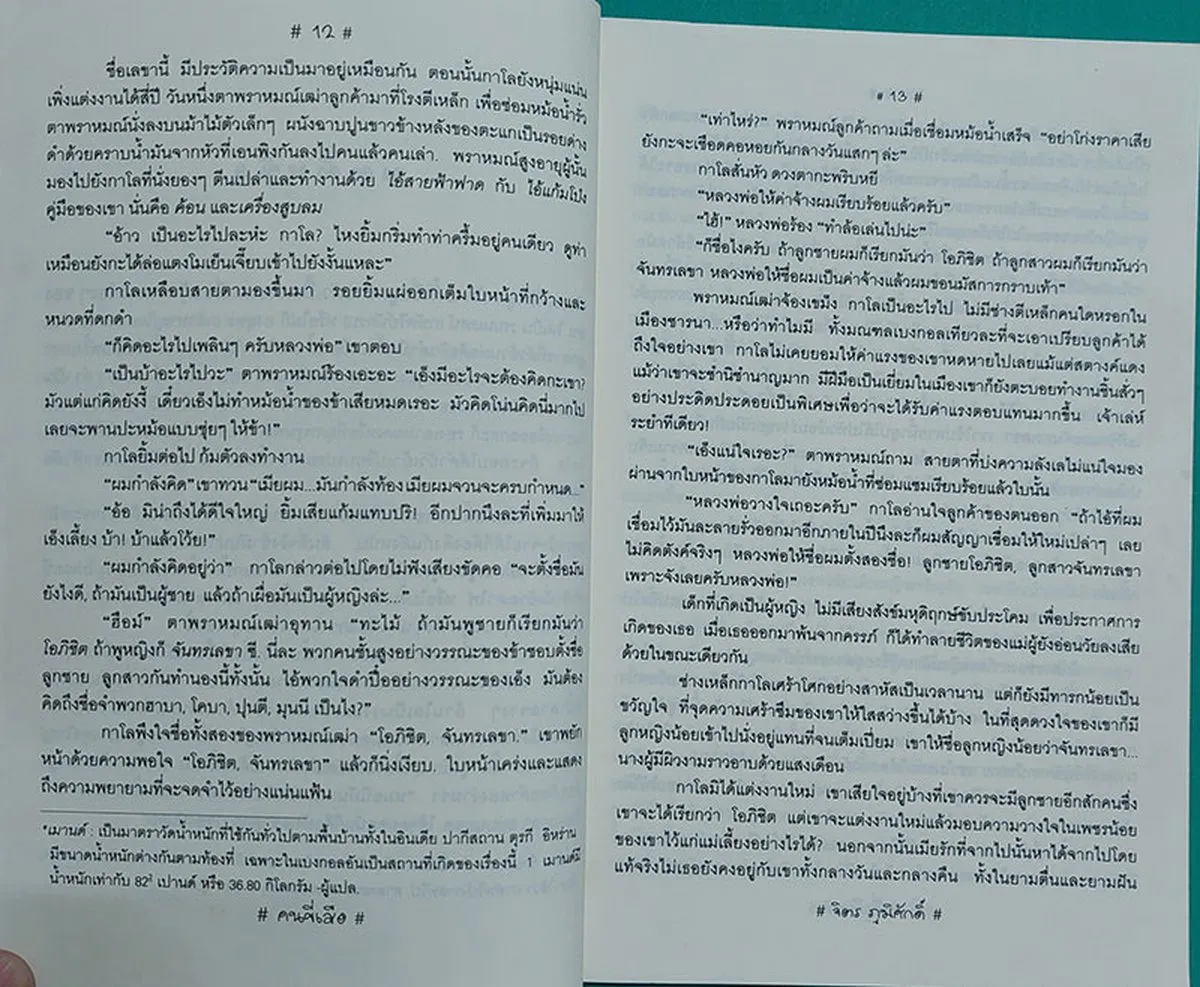 # 12 #
ชื่อเลขานี้ มีประวัติความเป็นมาอยู่เหมือนกัน ตอนนั้นกาโลยังหนุ่มแน่น
เพิ่งแต่งงานได้สี่ปี วันหนึ่งตาพราหมณ์เฒ่าลูกค้ามาที่โรงตีเหล็ก เพื่อซ่อมหม้อน้ำรั่ว
ตาพราหมณ์นั่งลงบนม้าไม้ตัวเล็กๆ ผนังฉาบปูนขาวข้างหลังของตะแกเป็นรอยด่าง
ดำด้วยคราบน้ำมันจากหัวที่เอนพิงกันลงไปคนแล้วคนเล่า. พราหมณ์สูงอายุผู้นั้น
มองไปยังกาโลที่นั่งยองๆ ตีนเปล่าและทำงานด้วย ไอ้สายฟ้าฟาด กับ ไอ้แก้มโป่ง
คู่มือของเขา นั่นคือ ค้อน และเครื่องสูบลม
“อ้าว เป็นอะไรไปละห่ะ กาโล? ไหงยิ้มกริ่มทำท่าครึ้มอยู่คนเดียว ดูท่า
เหมือนยังกะได้ล่อแตงโมเย็นเจี๊ยบเข้าไปยังงั้นแหละ”
กาโลเหลือบสายตามองขึ้นมา รอยยิ้มแผ่ออกเต็มใบหน้าที่กว้างและ
หนวดที่ดกดำ
“ก็คิดอะไรไปเพลินๆ ครับหลวงพ่อ” เขาตอบ
“เป็นบ้าอะไรไปวะ” ตาพราหมณ์ร้องเอะอะ “เอ็งมีอะไรจะต้องคิดกะเขา?
มัวแต่แก่คิดยังงี้ เดี๋ยวเอ็งไม่ทำหม้อน้ำของข้าเสียหมดเรอะ มัวคิดโน่นคิดนี่มากไป
เลยจะพานปะหม้อแบบซุ่ยๆ ให้ข้า!”
กาโลยิ้มต่อไป ก้มตัวลงทำงาน
“ผมกำลังคิด” เขาทวน “เมียผม...มันกำลังท้อง เมียผมจวนจะครบกำหนด...”
“อ้อ มิน่าถึงได้ดีใจใหญ่ ยิ้มเสียแก้มแทบปริ! อีกปากนึงละที่เพิ่มมาให้
เอ็งเลี้ยง บ้า! บ้าแล้วโว้ย!”
“ผมกำลังคิดอยู่ว่า” กาโลกล่าวต่อไปโดยไม่ฟังเสียงขัดคอ “จะตั้งชื่อมัน
ยังไงดี, ถ้ามันเป็นผู้ชาย แล้วถ้าเผื่อมันเป็นผู้หญิงล่ะ...”
“ฮือม์” ตาพราหมณ์เฒ่าอุทาน “ทะไม้ ถ้ามันพูชายก็เรียกมันว่า
โอภิชิต ถ้าพูหญิงก็ จันทรเลขา ซี. นี่ละ พวกคนชั้นสูงอย่างวรรณะของข้าชอบตั้งชื่อ
ลูกชาย ลูกสาวกันทำนองนี้ทั้งนั้น ไอ้พวกใจดำปื๋ออย่างวรรณะของเอ็ง มันต้อง
คิดถึงชื่อจำพวกฮาบา, โคบา, ปุนตี, มุนนี เป็นไง?”
กาโลพึงใจชื่อทั้งสองของพราหมณ์เฒ่า “โอภิชิต, จันทรเลขา.” เขาพยัก
หน้าด้วยความพอใจ “โอภิชิต, จันทรเลขา” แล้วก็นิ่งเงียบ. ใบหน้าเคร่งและแสดง
ถึงความพยายามที่จะจดจำไว้อย่างแน่นแฟ้น
*เมานด์ : เป็นมาตราวัดน้ำหนักที่ใช้กันทั่วไปตามพื้นบ้านทั้งในอินเดีย ปากีสถาน ตุรกี อิหร่าน
มีขนาดน้ำหนักต่างกันตามท้องที่ เฉพาะในเบงกอลอันเป็นสถานที่เกิดของเรื่องนี้ 1 เมานด์มี
น้ำหนักเท่ากับ 82² เปานด์ หรือ 36.80 กิโลกรัม -ผู้แปล.
# คนขี่เสือ #
# 13 #
“เท่าไหร่?” พราหมณ์ลูกค้าถามเมื่อเชื่อมหม้อน้ำเสร็จ “อย่าโก่งราคาเสีย
ยังกะจะเชือดคอหอยกันกลางวันแสกๆ ล่ะ”
กาโลสั่นหัว ดวงตากะพริบหยี
“หลวงพ่อให้ค่าจ้างผมเรียบร้อยแล้วครับ”
“ไฮ้!” หลวงพ่อร้อง “ทำล้อเล่นไปน่ะ”
“ก็ชื่อไงครับ ถ้าลูกชายผมก็เรียกมันว่า โอภิชิต ถ้าลูกสาวผมก็เรียกมันว่า
จันทรเลขา หลวงพ่อให้ชื่อผมเป็นค่าจ้างแล้วผมขอนมัสการกราบเท้า”
พราหมณ์เฒ่าจ้องเขม็ง กาโลเป็นอะไรไป ไม่มีช่างตีเหล็กคนใดหรอกใน
เมืองชารนา...หรือว่าทำไมมี ทั้งมณฑลเบงกอลเทียวละที่จะเอาเปรียบลูกค้าได้
ถึงใจอย่างเขา กาโลไม่เคยยอมให้ค่าแรงของเขาหดหายไปเลยแม้แต่สตางค์แดง
แม้ว่าเขาจะชำนิชำนาญมาก มีฝีมือเป็นเยี่ยมในเมืองเขาก็ยังตะบอยทำงานชิ้นสั่วๆ
อย่างประดิดประดอยเป็นพิเศษเพื่อว่าจะได้รับค่าแรงตอบแทนมากขึ้น เจ้าเล่ห์
ระยำทีเดียว!
“เอ็งแน่ใจเรอะ?” ตาพราหมณ์ถาม สายตาที่บ่งความลังเลไม่แน่ใจมอง
ผ่านจากใบหน้าของกาโลมายังหม้อน้ำที่ซ่อมแซมเรียบร้อยแล้วใบนั้น
“หลวงพ่อวางใจเถอะครับ” กาโลอ่านใจลูกค้าของตนออก “ถ้าไอ้ที่ผม
เชื่อมไว้มันละลายรั่วออกมาอีกภายในปีนึงละก็ผมสัญญาเชื่อมให้ใหม่เปล่าๆ เลย
ไม่คิดตังค์จริงๆ หลวงพ่อให้ชื่อผมตั้งสองชื่อ! ลูกชายโอภิชิต, ลูกสาวจันทรเลขา
เพราะจังเลยครับหลวงพ่อ!”
เด็กที่เกิดเป็นผู้หญิง ไม่มีเสียงสังข์มหุดีฤกษ์ขับประโคม เพื่อประกาศการ
เกิดของเธอ เมื่อเธอออกมาพ้นจากครรภ์ ก็ได้ทำลายชีวิตของแม่ผู้ยังอ่อนวัยลงเสีย
ด้วยในขณะเดียวกัน
ช่างเหล็กกาโลเศร้าโศกอย่างสาหัสเป็นเวลานาน แต่ก็ยังมีทารกน้อยเป็น
ขวัญใจ ที่จุดความเศร้าซึมของเขาให้ใสสว่างขึ้นได้บ้าง ในที่สุดดวงใจของเขาก็มี
ลูกหญิงน้อยเข้าไปนั่งอยู่แทนที่จนเต็มเปี่ยม เขาให้ชื่อลูกหญิงน้อยว่าจันทรเลขา...
นางผู้มีผิวงามราวอาบด้วยแสงเดือน
กาโลมิได้แต่งงานใหม่ เขาเสียใจอยู่บ้างที่เขาควรจะมีลูกชายอีกสักคนซึ่ง
เขาจะได้เรียกว่า โอภิชิต แต่เขาจะแต่งงานใหม่แล้วมอบความวางใจในเพชรน้อย
ของเขาไว้แก่แม่เลี้ยงอย่างไรได้? นอกจากนั้นเมียรักที่จากไปนั้นหาได้จากไปโดย
แท้จริงไม่เธอยังคงอยู่กับเขาทั้งกลางวันและกลางคืน ทั้งในยามตื่นและยามฝัน
# จิตร ภูมิศักดิ์ #